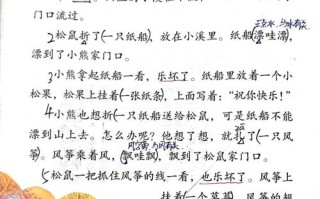 门口流过。
2松鼠折了(一只纸船),放在小溪里。纸船(漂哇漂),
漂到了小熊家门口。
3小熊拿起纸船一看,乐坏了。纸船里放着一个小
松果,松果上挂着(一张纸条),上面写着:“祝你快乐!”
4小熊也想折(一只纸船)送给松鼠,可是纸船不能
漂到山上去。怎么办呢?他想了想,就扎了(一只风
筝)。风筝乘着风,(飘哇飘),飘到了松鼠家门口。
5松鼠一把抓住风筝的线一看,也乐坏了。风筝上
挂着(一个草莓),风筝的翅